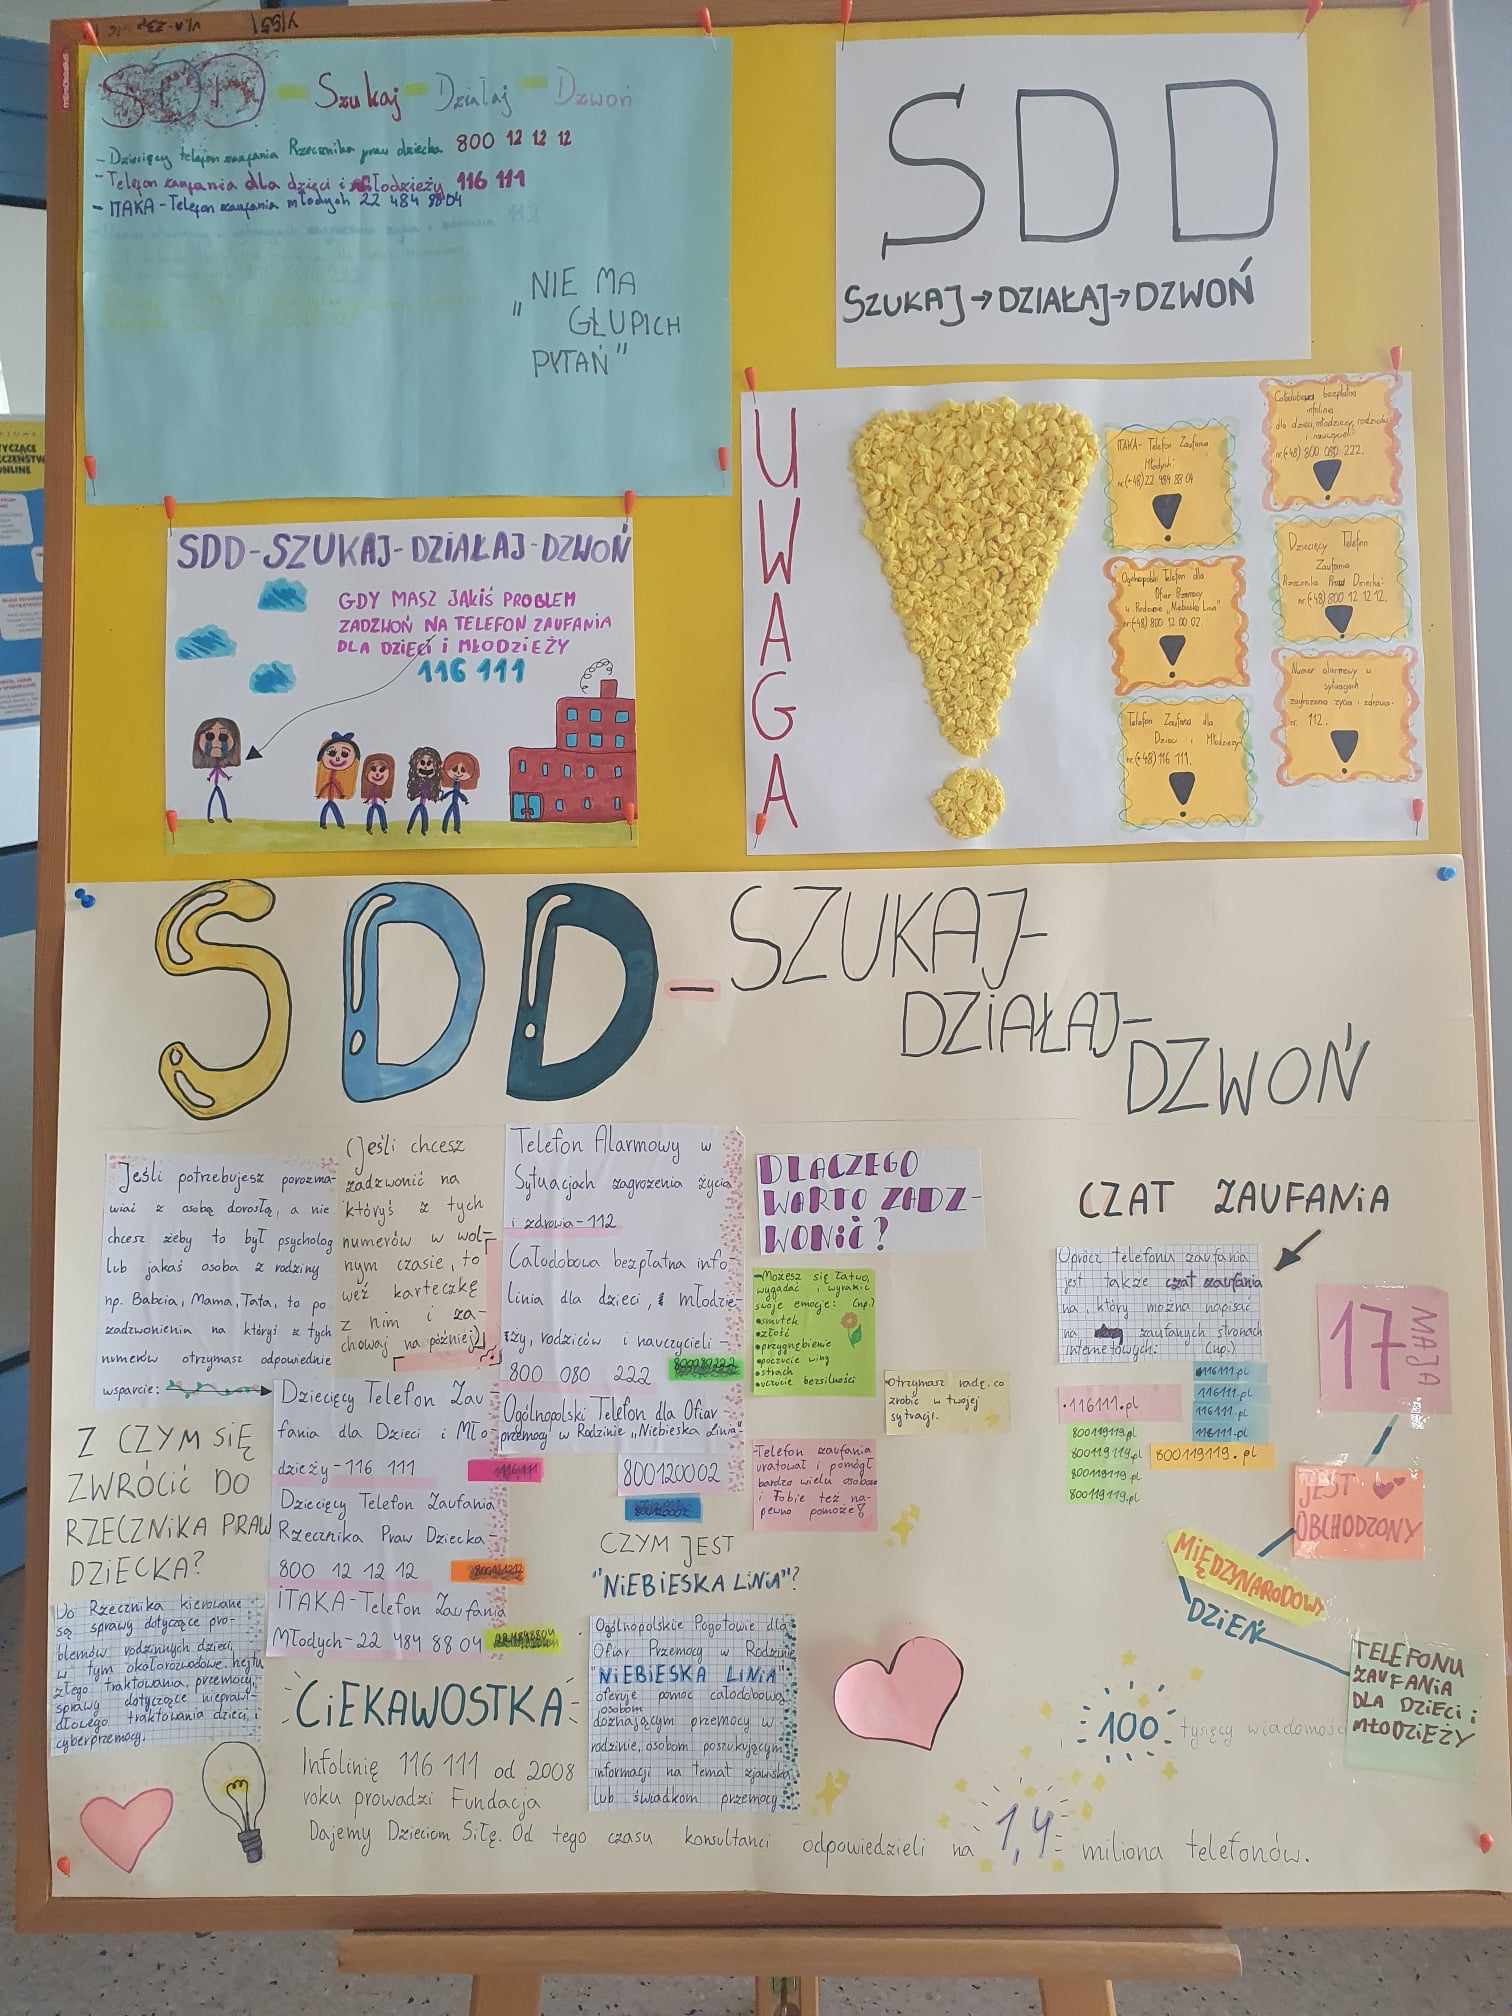 SDD - Szukaj - Działaj - Dzwoń
- Dziecięcy telefon zaufania Rzecznika praw dziecka 800 12 12 12
- Telefon zaufania dla dzieci i młodzieży 116 111
- ITAKA - Telefon zaufania młodych 22 484 88 04
112
"NIE MA
GŁUPICH
PYTAŃ"
SDD
SZUKAJ → DZIAŁAJ → DZWOŃ
SDD-SZUKAJ-DZIAŁAJ-DZWOŃ
GDY MASZ JAKIŚ PROBLEM
ZADZWOŃ NA TELEFON ZAUFANIA
DLA DZIECI I MŁODZIEŻY
116 111
UWAGA
ITAKA- Telefon Zaufania
Młodych:
nr.(+48) 22 484 88 04
Całodobowa bezpłatna
infolinia
dla dzieci, młodzieży, rodziców
i nauczycieli
nr.(+48) 800 080 222.
Ogólnopolski Telefon dla
Ofiar Przemocy
w Rodzinie „Niebieska Linia"
nr.(+48) 800 12 00 02
Dziecięcy Telefon
Zaufania
Rzecznika Praw Dziecka:
nr.(+48) 800 12 12 12.
Telefon Zaufania dla
Dzieci i Młodzieży
nr.(+48) 116 111.
Numer alarmowy w
sytuacjach
zagrożenia życia i zdrowia.
nr. 112.
SDD - SZUKAJ-
DZIAŁAJ-
DZWOŃ
Jeśli potrzebujesz porozma-
wiać z osobą dorosłą, a nie
chcesz żeby to był psycholog
lub jakaś osoba z rodziny
np. Babcia, Mama, Tata, to po
zadzwonieniu na któryś z tych
numerów otrzymasz odpowiednie
wsparcie:
(Jeśli chcesz
zadzwonić na
któryś z tych
numerów w wol-
nym czasie, to
weź karteczkę
z nim i za-
chowaj na później)
Telefon Alarmowy w
Sytuacjach zagrożenia życia
i zdrowia - 112
Całodobowa bezpłatna info-
linia dla dzieci, młodzie-
ży, rodziców i nauczycieli -
800 080 222
800080222
Ogólnopolski Telefon dla Ofiar
przemocy w Rodzinie „Niebieska Linia"-
800120002
Dziecięcy Telefon Zau-
fania dla Dzieci i Mło-
dzieży - 116 111
116111
Dziecięcy Telefon Zaufania
Rzecznika Praw Dziecka-
800 12 12 12
800121212
ITAKA - Telefon Zaufania
Młodych - 22 484 88 04
DLACZEGO
WARTO ZADZ-
WONIĆ?
- Możesz się łatwo
wygadać i wyrazić
swoje emocje: (np.)
• smutek
• złość
• przygnębienie
• poczucie winy
• strach
• uczucie bezsilności
• Otrzymasz radę, co
zrobić w twojej
sytuacji.
- Telefon zaufania
uratował i pomógł
bardzo wielu osobom
i Tobie też na-
pewno pomoże!
CZAT ZAUFANIA
Oprócz telefonu zaufania
jest także czat zaufania
na, który można napisać
na zaufanych stronach
internetowych: (np.)
• 116111.pl
116111.pl
116111.pl
116111.pl
116111.pl
800119119.pl
800119119.pl
800119119.pl
800119119.pl
800119119.pl
17
MAJA
JEST
OBCHODZONY
MIĘDZYNARODOWY
DZIEŃ
TELEFONU
ZAUFANIA
DLA DZIECI i
MŁODZIEŻY
Z CZYM SIĘ
ZWRÓCIĆ DO
RZECZNIKA PRAW
DZIECKA?
Do Rzecznika kierowane
są sprawy dotyczące pro-
blemów rodzinnych dzieci,
w tym okołorozwodowe, hejtu,
złego traktowania, przemocy,
sprawy dotyczące niepraw-
dłowego traktowania dzieci, i
cyberprzemocy.
CZYM JEST
"NIEBIESKA LINIA"?
Ogólnopolskie Pogotowie dla
Ofiar Przemocy w Rodzinie
"NIEBIESKA LINIA"
oferuje pomoc całodobową
osobom
doznającym przemocy w
rodzinie, osobom poszukującym
informacji na temat zjawiska
lub świadkom przemocy
CIEKAWOSTKA
Infolinię 116 111 od 2008
roku prowadzi Fundacja
Dajemy Dzieciom Siłę. Od tego czasu konsultanci odpowiedzieli na 1,4 miliona telefonów.
i 100 tysięcy wiadomości